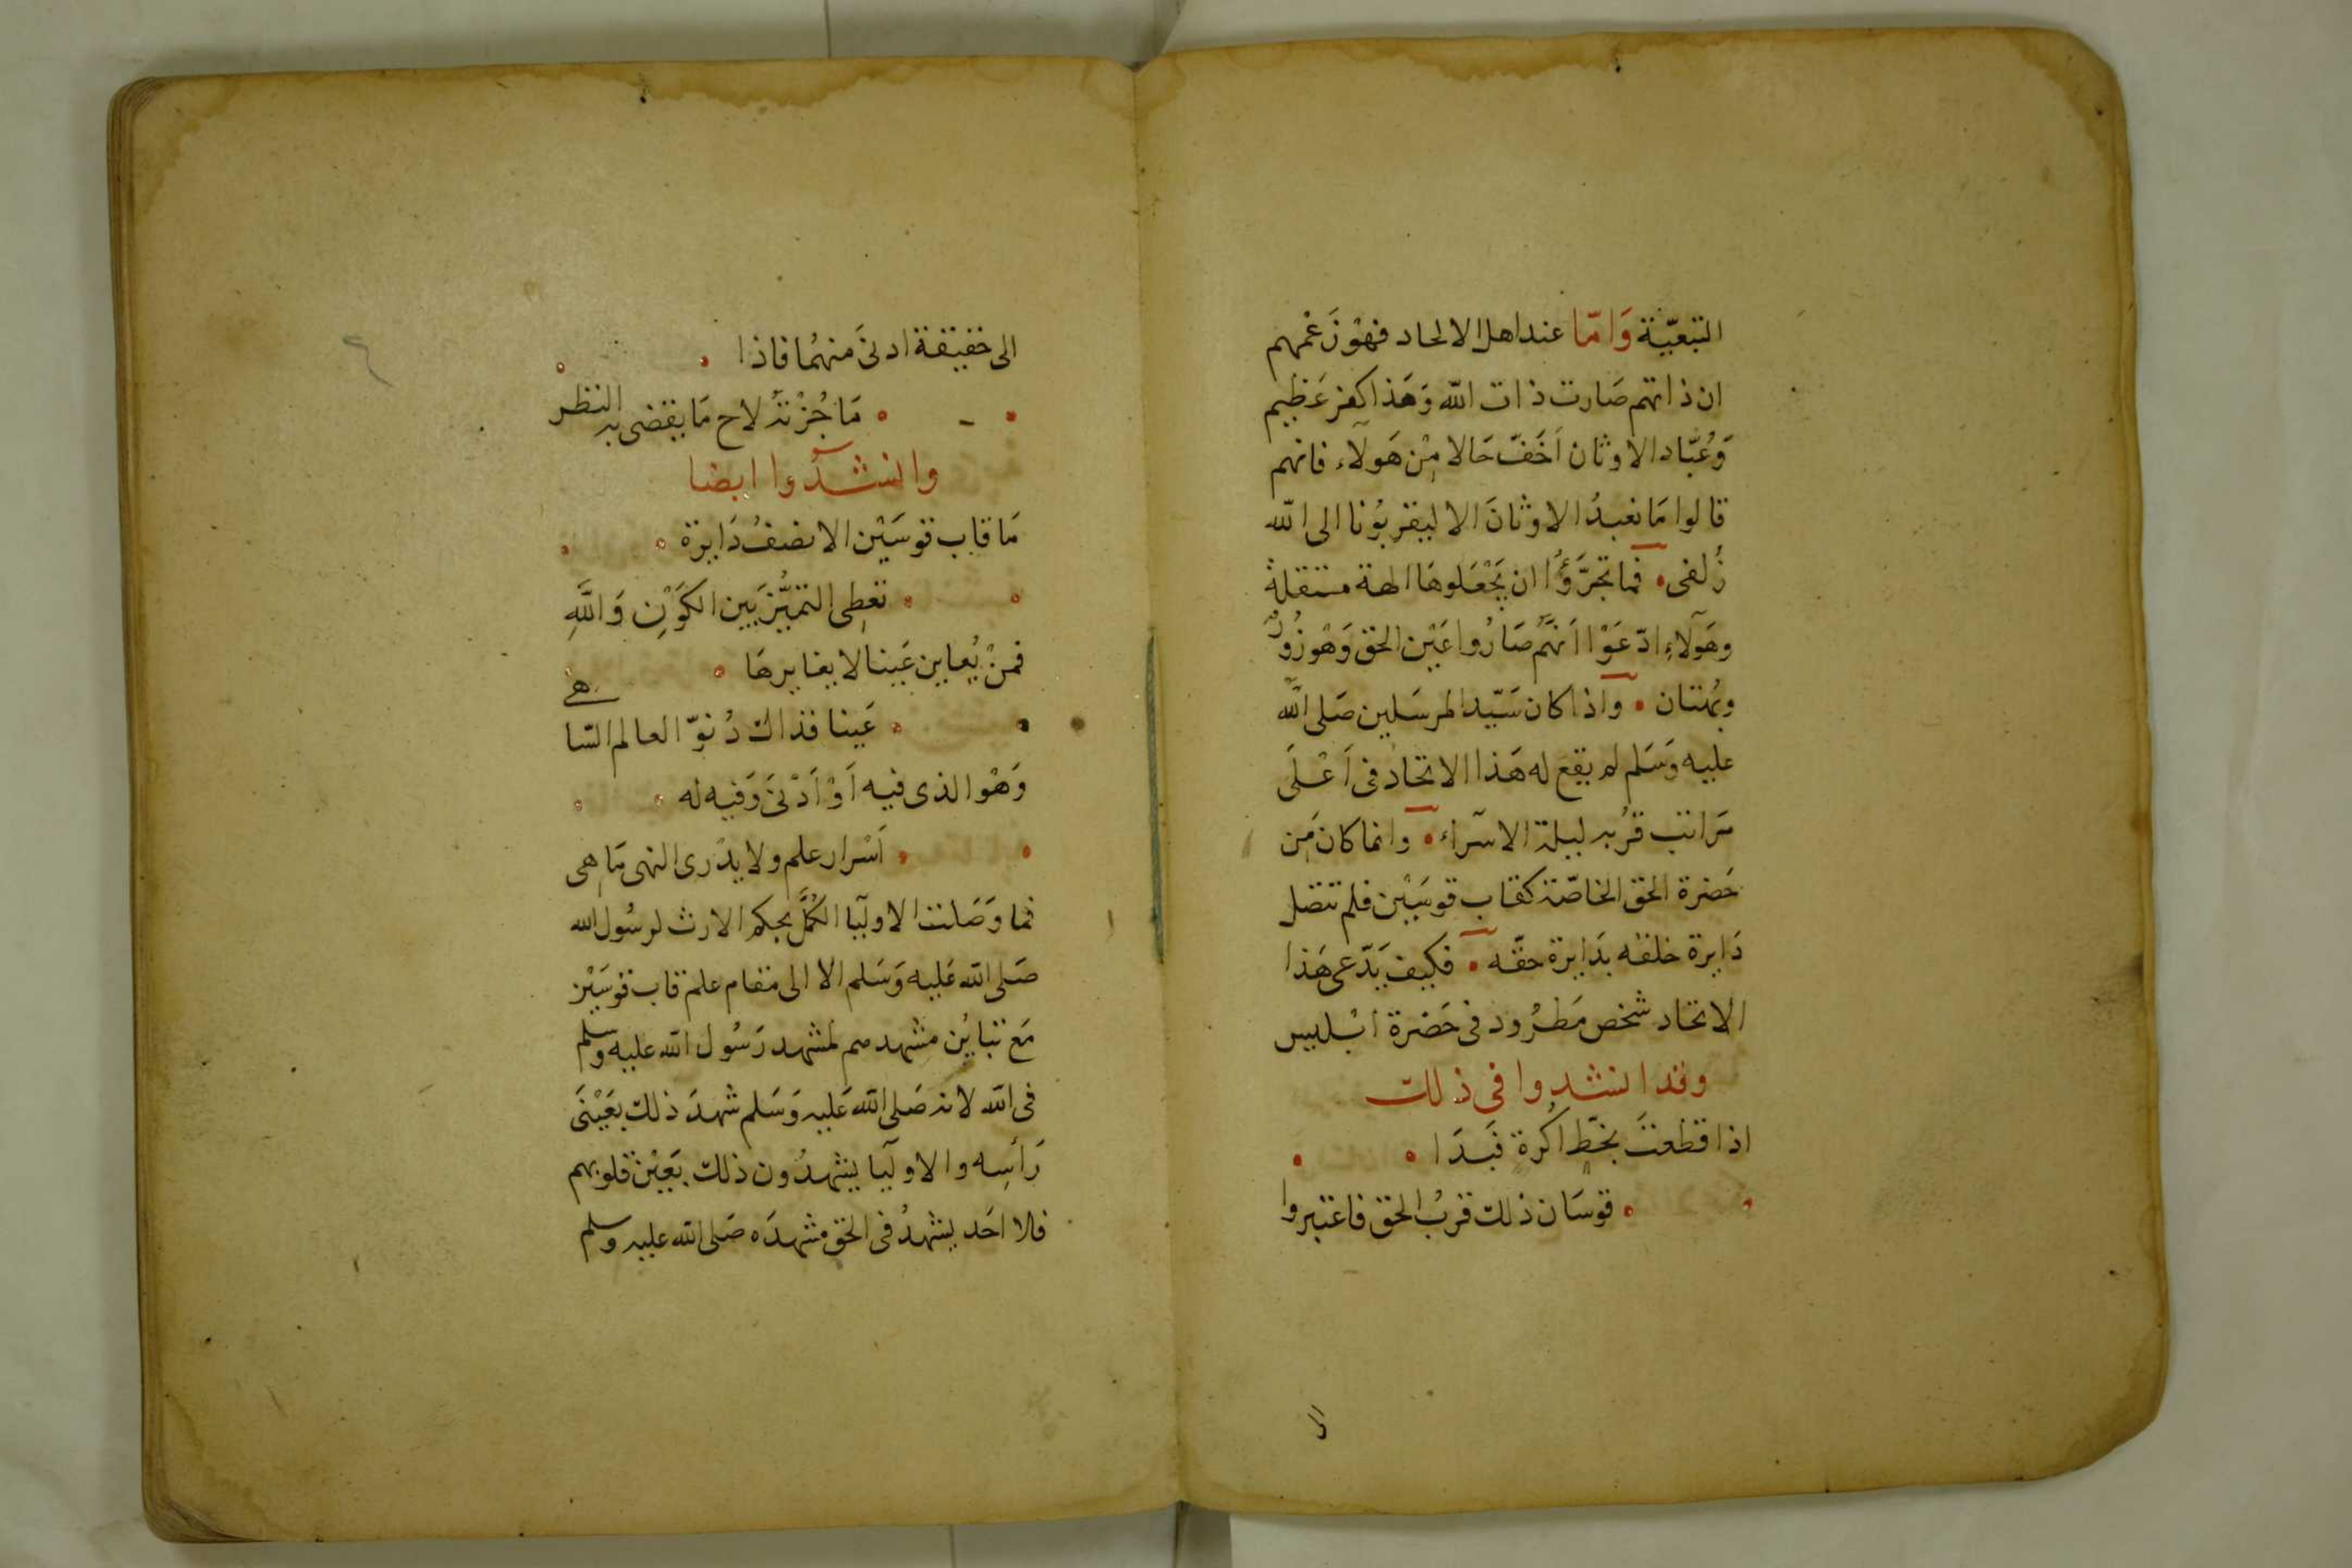 التبعيّة وَامّا عند اهل الالحاد فهوْ زَعْمهم
ان ذاتهم صَارت ذات الله وَهَذا كفر عَظيم
وَعُبّاد الاوثان اَخَفّ حَالا مِنْ هَولآء فانهم
قالوا مَا نعبدُ الاوثانَ الا ليقربوُنا الى الله
زُلفى • فما تجرَّؤُا ان يَجْعَلوهَا الهة مستقلة
وهَولآءِ ادّعَوْا اَنهَّم صَارُوا عَيْن الحق وَهْو زُورٌ
وبُهتان • واذا كان سَيّد المرسَلين صَلى الله
عليه وَسَلم لم يقع له هَذا الاتحاد فى اَعْلَى
مَراتب قرُبه ليلة الاسرآء • وانما كان مَن
حَضرة الحق الخاصّة كقاب قوسَيْن فلم تتصل
دَايرة خلقه بدَايرة حقّه • فكيف يَدّعى هَذا
الاتحاد شخص مَطرُود فى حَضرة ابْليس
وقد انشدوا فى ذلك
اذا قطعتَ بخَطّ اكُرة فَبَدَا •
• قوسَان ذلك قربُ الحق فاعتبروا
الى
الى حقيقة ادنىَ منهمُا فاذا •
• مَا جُزْتَهُ لاح مَا يقضى به النظر
وانشدُوا ايضا
مَا قاب قوسَيْن الا نصفُ دَايرة •
• تعطِى التمَيُّز بَين الكَوَنِ وَاللَّهِ
فمنْ يُعاين عَينا لا يغايرهَا •
• عَينا فذاك دُنوّ العالم السّاهى
وَهْو الذى فيه اَوْ اَدْنىَ وَفيه له •
• اَسْرار علم ولا يدْرى النهى مَا هى
فما وَصَلت الاوليَآ الكُمَّل بحكم الارث لرسُول الله
صَلى الله عَليه وَسَلم الا الى مقام علم قاب قوسَيْن
مَع تبايُن مشهدهم لمشهد رَسُول الله عليه وسلم
فى الله لانه صَلى الله عَليه وَسَلم شهدَ ذلك بعَيْنىَ
رَأسِه والاوليَآ يشهدُون ذلك بعَيْن قلوبهم
فلا احَد يشهدُ فى الحق مَشهدَه صَلى الله عليه وسلم